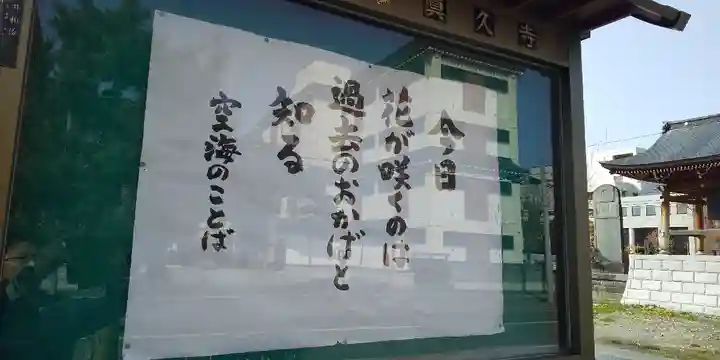 眞久寺
今日
花が咲くのは
過去のおかげと
知る
空海のことば